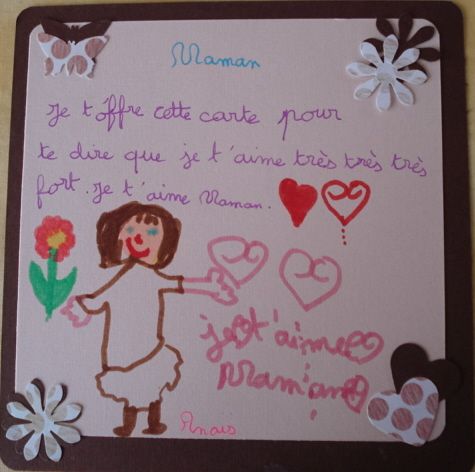 Maman
Je t'offre cette carte pour
te dire que je t'aime très très très
fort. Je t'aime Maman.
je t'aime
Maman
Anais